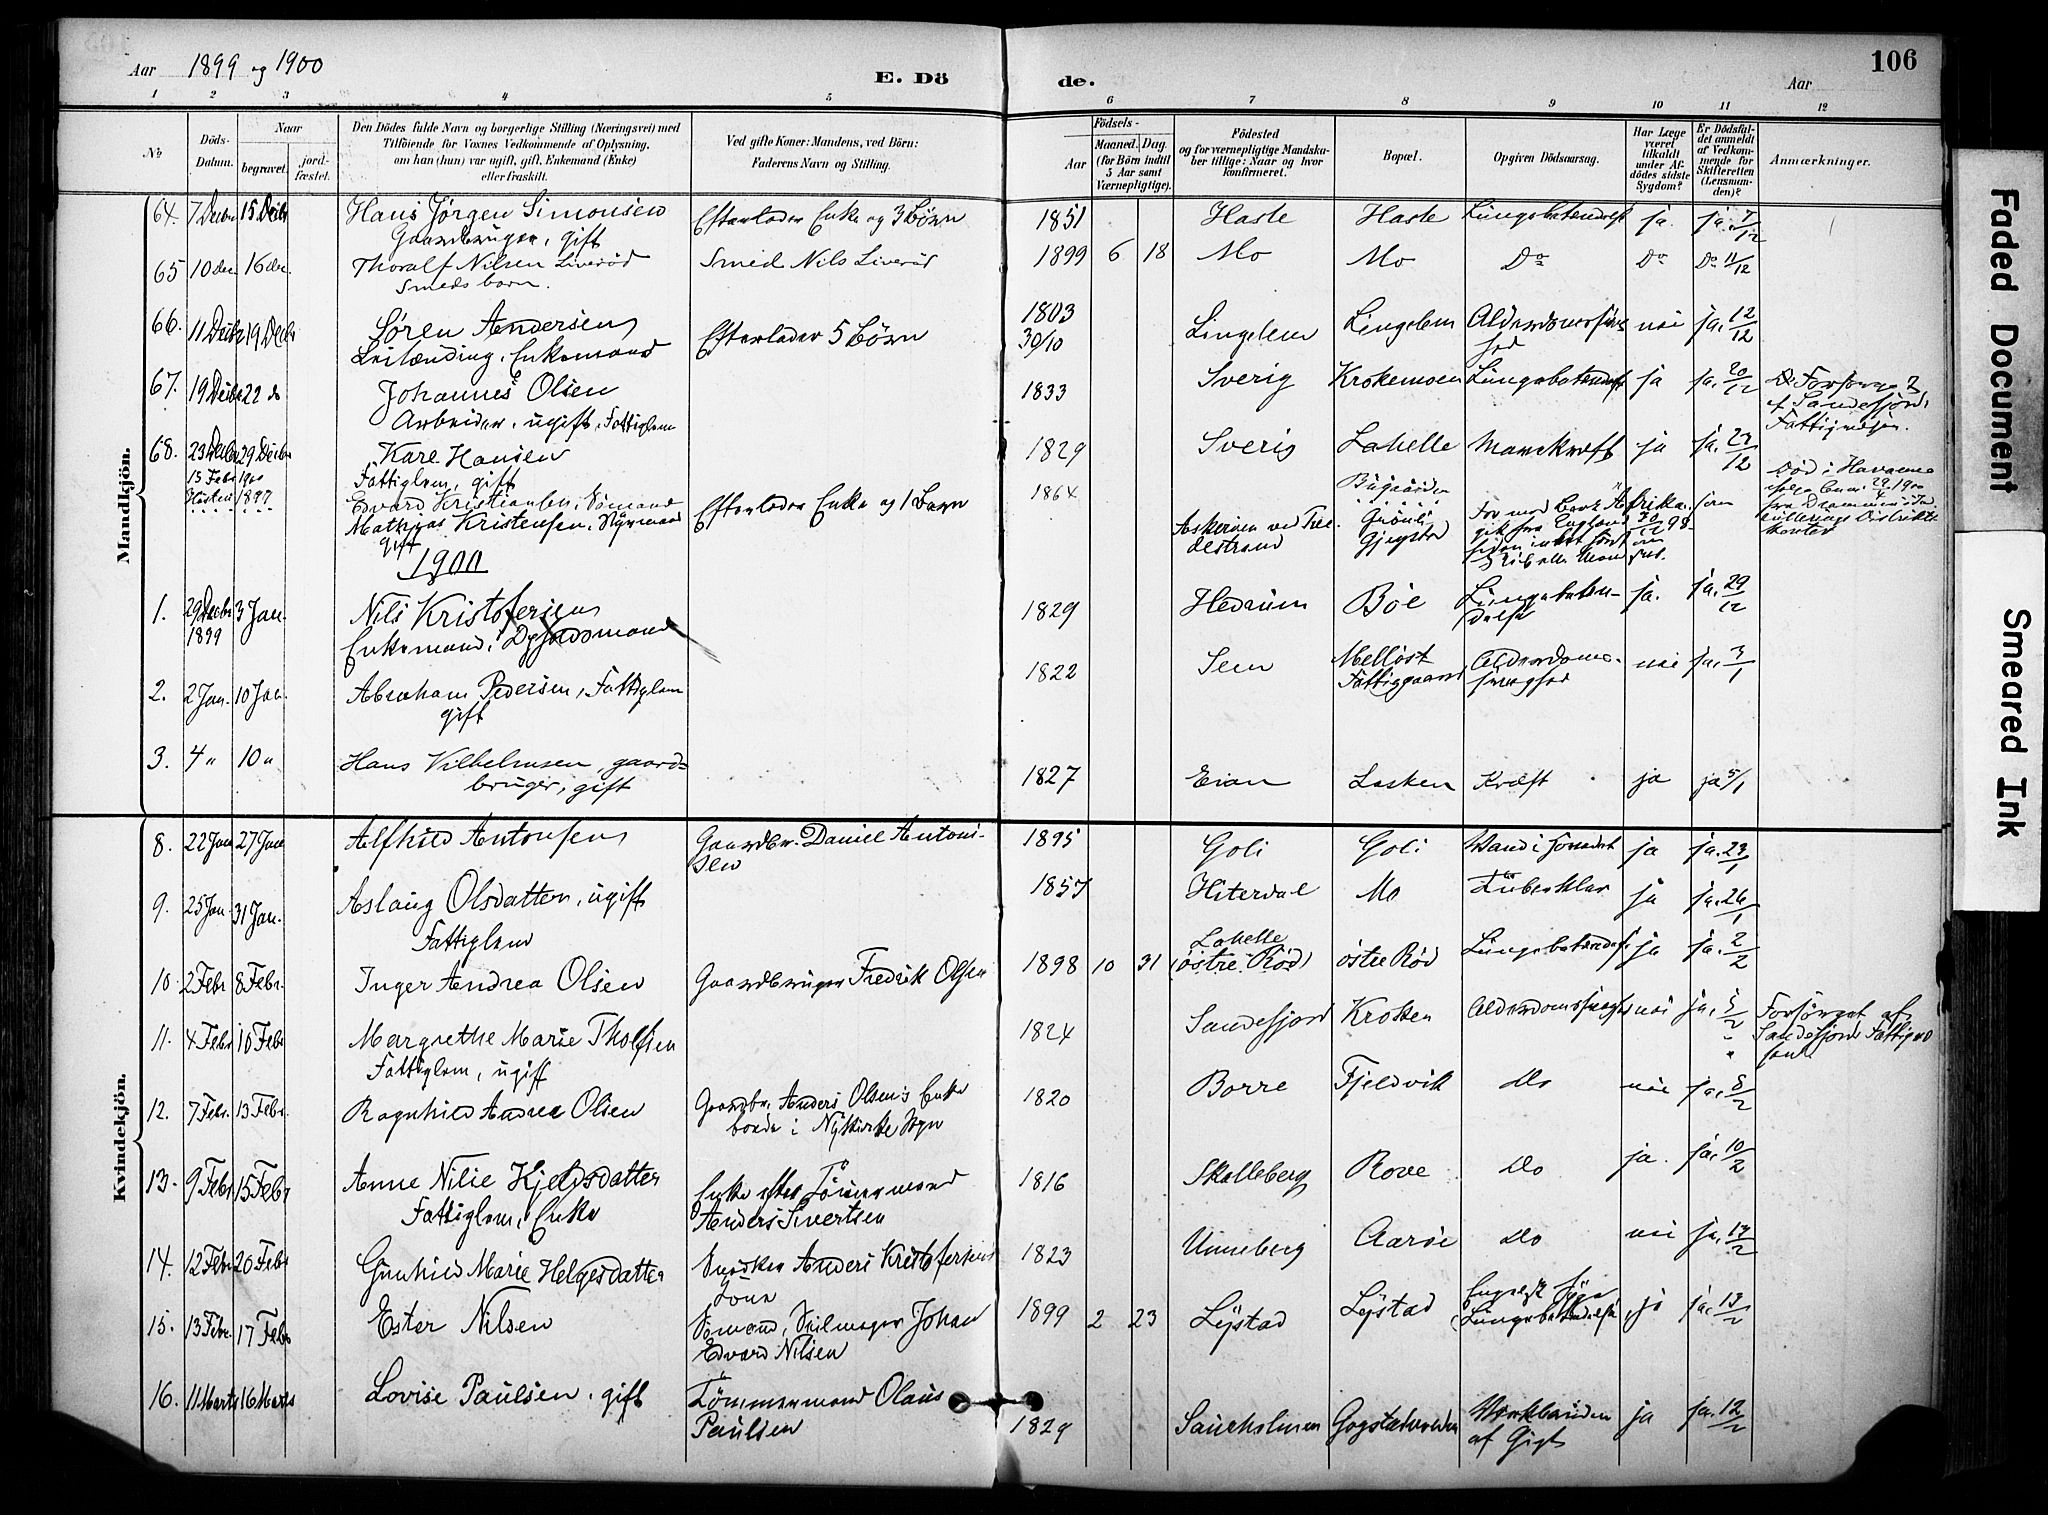 Aar 1899 og 1900
E. Dö
de.
Aar
106
1 2 3 4 5 6 7 8 9 10 11 12
No
Döds-
Datum.
Naar
begravet.
jord-
fæstet.
Den Dödes fulde Navn og borgerlige Stilling (Næringsvei) med
Tilföiende for Voxnes Vedkommende af Oplysning,
om han (hun) var ugift, gift, Enkemand (Enke)
eller fraskilt.
Ved gifte Koner: Mandens, ved Börn:
Faderens Navn og Stilling.
Födsels-
Aar
Maaned. Dag.
(for Börn indtil
5 Aar samt
Værnepligtige).
Födested
og for værnepligtige Mandska-
ber tillige: Naar og hvor
konfirmeret.
Bopæl.
Opgiven Dödsaarsag.
Har Læge
været
tilkaldt
under Af-
dödes sidste
Sygdom?
Er Dödsfal-
det anmeldt
af Vedkom-
mende for
Skifteretten
(Lensman-
den)?
Anmærkninger.
Mandkjön.
64. 7 Decbr 15 Decbr Hans Jørgen Simonsen Efterlader Enke og 3 Börn 1851 Hasle Hasle Lungebetændelse ja. ja. 7/12
Gaardbruger, gift
65 10 dec. 16 dec. Thoralf Nilsen Liverød Smed Nils Liverød 1899 6 18 Mo Mo Do Do Do 11/12
Smeds barn.
66. 11 Decbr 19 Decbr Søren Andersen Efterlader 5 Börn 1803 30/10 Lingelem Lingelem nei ja. 12/12
Leilænding, Enkemand
67. 19 Decbr 22 do Johannes Olsen 1833 Sverig Krokemoen Lungebetændelse ja ja. 20/12
Arbeider, ugift, Fattiglem
af Sandefjords
Fattigvæsen.
68. 23 Decbr 29 Decbr Karl Hansen 1829 Sverig Lahelle Marekræft ja ja.
Fattiglem, gift
15 Febr 1900 Edvard Kristiansen, Sømand Efterlader Enke og 1 Barn 1864
1897 Mathias Kristensen, Styrmand
gift
Askerøen ved Tve-
destrand
Gjegstad
Død i Havanna
1900
1. 29 Decbr 1899 3 Jan. Nils Kristofersen 1829 Hedrum Bøe Lungebeten-
delse ja. ja. 29/12
Enkemand,
2. 2 Jan. 10 Jan. Abraham Pedersen, Fattiglem 1822 Sem Melløst
Fattiggaard Alderdoms-
svaghed nei ja. 3/1
gift
3. 4 " 10 " Hans Vilhelmsen, gaard-
bruger, gift 1827 Eian Lasken Kræft ja ja 5/1
Kvindekjön.
8. 22 Jan 27 Jan Alfhild Antonsen Gaardbr. Daniel Antoni-
sen 1895 Goli Goli Vand i hovedet ja ja. 23/1
9. 25 Jan. 31 Jan. Aslaug Olsdatter, ugift 1857 Hiterdal Mo Tuberklar ja ja. 26/1
Fattiglem
10. 2 Febr 8 Febr. Inger Andrea Olsen Gaardbruger Fredrik Olsen 1898 10 31 Lahelle
(østre Rød) østre Rød Lungebetændelse ja ja. 2/2
11. 4 Febr 10 Febr Margrethe Marie Tholfsen 1824 Sandefjord Krokken Alderdomssvaghed nei ja. 5/2 Forsørget af
Sandefjords Fattigvæ
sen
Fattiglem, ugift
12. 7 Febr. 13 Febr. Ragnhild Andrea Olsen Gaardbr. Anders Olsens Enke
boende i Nykirke Sogn 1820 Borre Fjeldvik do nei ja. 8/2
13. 9 Febr 15 Febr Anne Nilie Kjeldsdatter Enke efter Tömmermand
Anders Sivertsen 1816 Skalleberg Rove do ja. ja. 10/2
Fattiglem, Enke
14. 12 Febr 20 Febr Gunhild Marie Helgesdatter Snedker Anders Kristofersens
Kone 1823 Unneberg Aarøe do nei ja. 13/2
15. 13 Febr. 17 Febr Ester Nilsen Sømand, Seilmager Johan
Edvard Nilsen 1899 2 23 Lystad Lystad Engelsk Syge
Lungebetændelse ja ja. 13/2
16. 11 Marts 16 Marts Lovise Paulsen, gift Tömmermand Olaus
Paulsen 1829 Saueholmen ja ja. 12/2
af Gigt
Faded Document
Smeared Ink